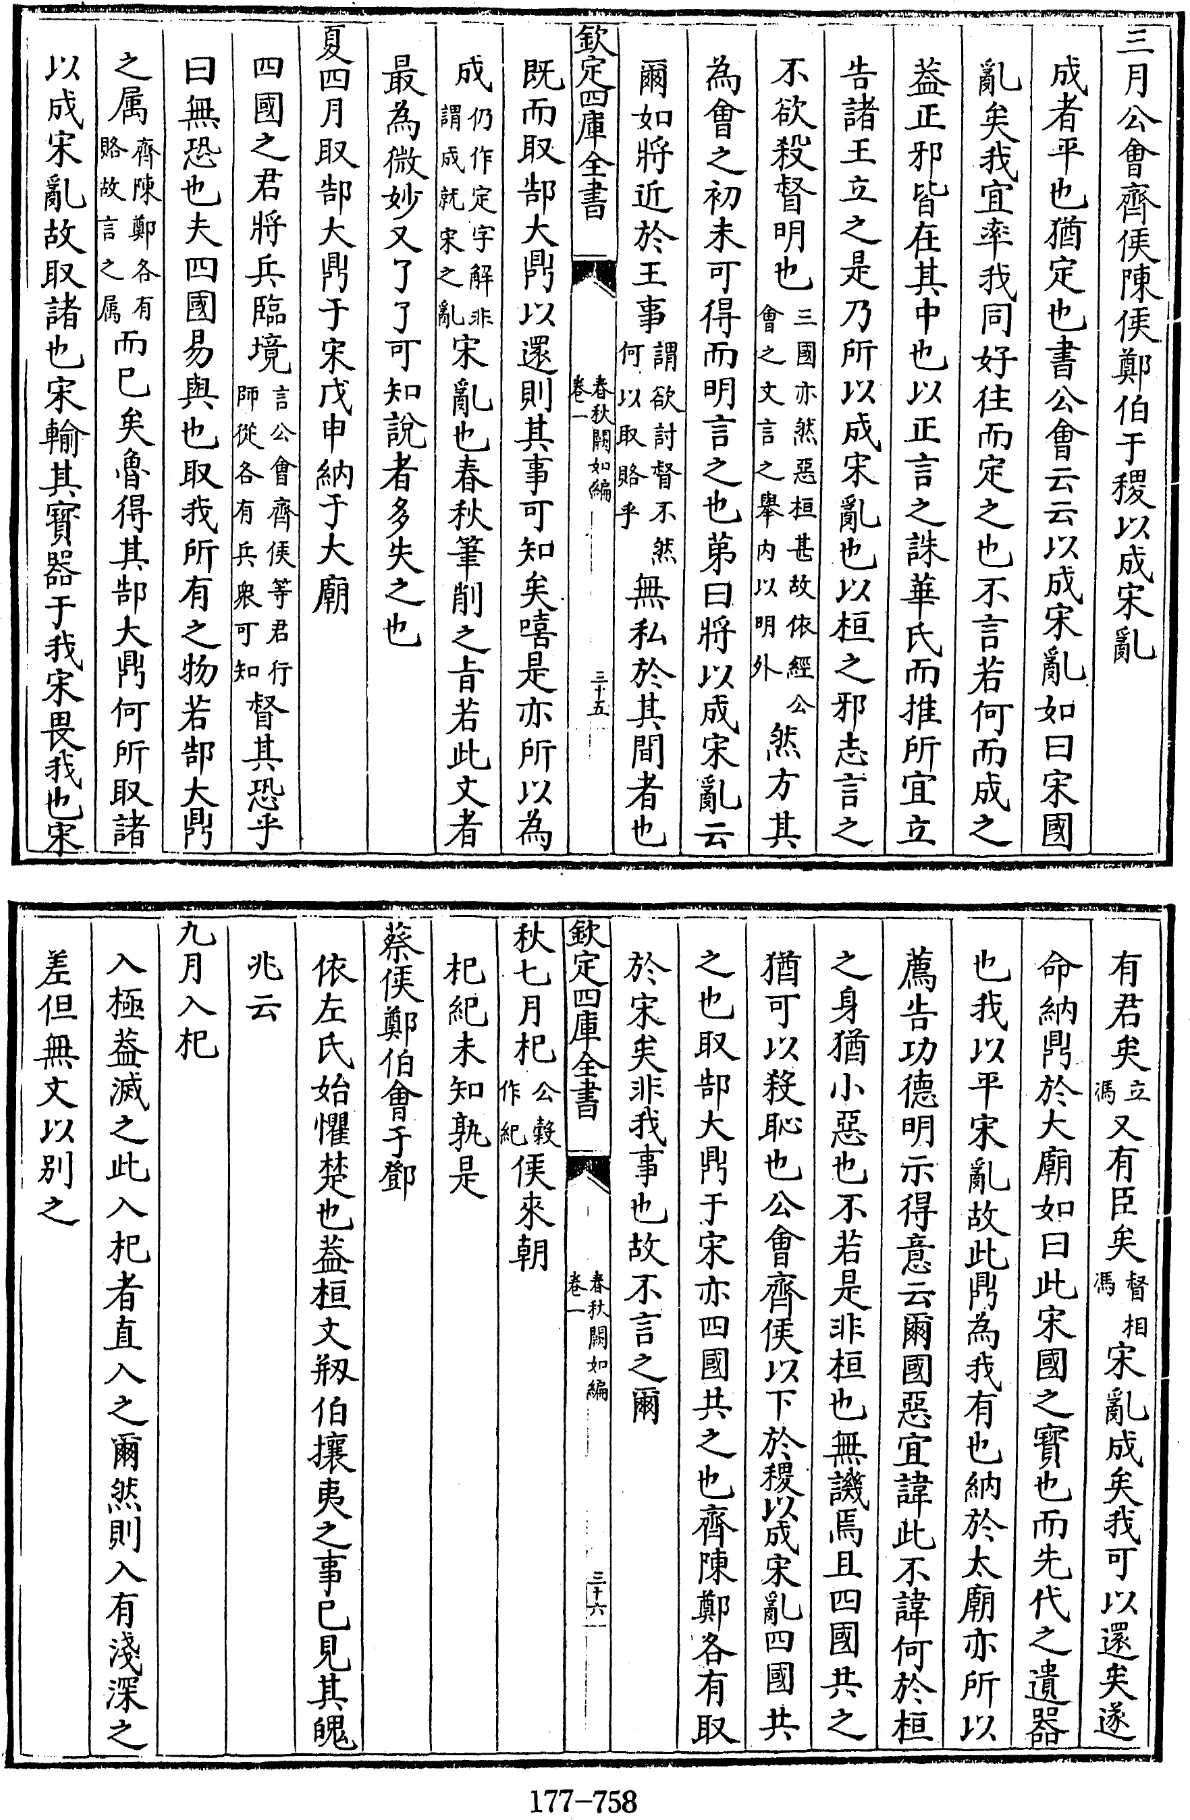 三月公會齊侯陳侯鄭伯于稷以成宋亂
成者平也猶定也書公會云云以成宋亂如曰宋國
亂矣我宜率我同好往而定之也不言若何而成之
葢正邪皆在其中也以正言之誅華氏而推所宜立
告諸王立之是乃所以成宋亂也以桓之邪志言之
不欲殺督明也三國亦然惡桓甚故依經公會之文言之舉内以明外然方其
為會之初未可得而明言之也第曰將以成宋亂云
爾如將近於王事謂欲討督不然何以取賂乎無私於其間者也
欽定四庫全書
春秋闕如編
卷一
三十五
既而取郜大鼎以還則其事可知矣嘻是亦所以為
成仍作定字解非謂成就宋之亂宋亂也春秋筆削之旨若此文者
最為微妙又了了可知說者多失之也
夏四月取郜大鼎于宋戊申納于大廟
四國之君將兵臨境言公會齊侯等君行師從各有兵衆可知督其恐乎
曰無恐也夫四國易與也取我所有之物若郜大鼎
之属齊陳鄭各有賂故言之属而已矣魯得其郜大鼎何所取諸
以成宋亂故取諸也宋輸其寳器于我宋畏我也宋
有君矣立馮又有臣矣督相馮宋亂成矣我可以還矣遂
命納鼎於大廟如曰此宋國之寳也而先代之遺器
也我以平宋亂故此鼎為我有也納於太廟亦所以
薦告功德明示得意云爾國惡宜諱此不諱何於桓
之身猶小惡也不若是非桓也無譏焉且四國共之
猶可以殺恥也公會齊侯以下於稷以成宋亂四國共
之也取郜大鼎于宋亦四國共之也齊陳鄭各有取
於宋矣非我事也故不言之爾
欽定四庫全書
春秋闕如編
卷一
三十六
秋七月杞公穀作紀侯來朝
杞紀未知孰是
蔡侯鄭伯會于鄧
依左氏始懼楚也葢桓文剏伯攘夷之事已見其魄
兆云
九月入杞
入極葢滅之此入杞者直入之爾然則入有淺深之
差但無文以别之
177-758